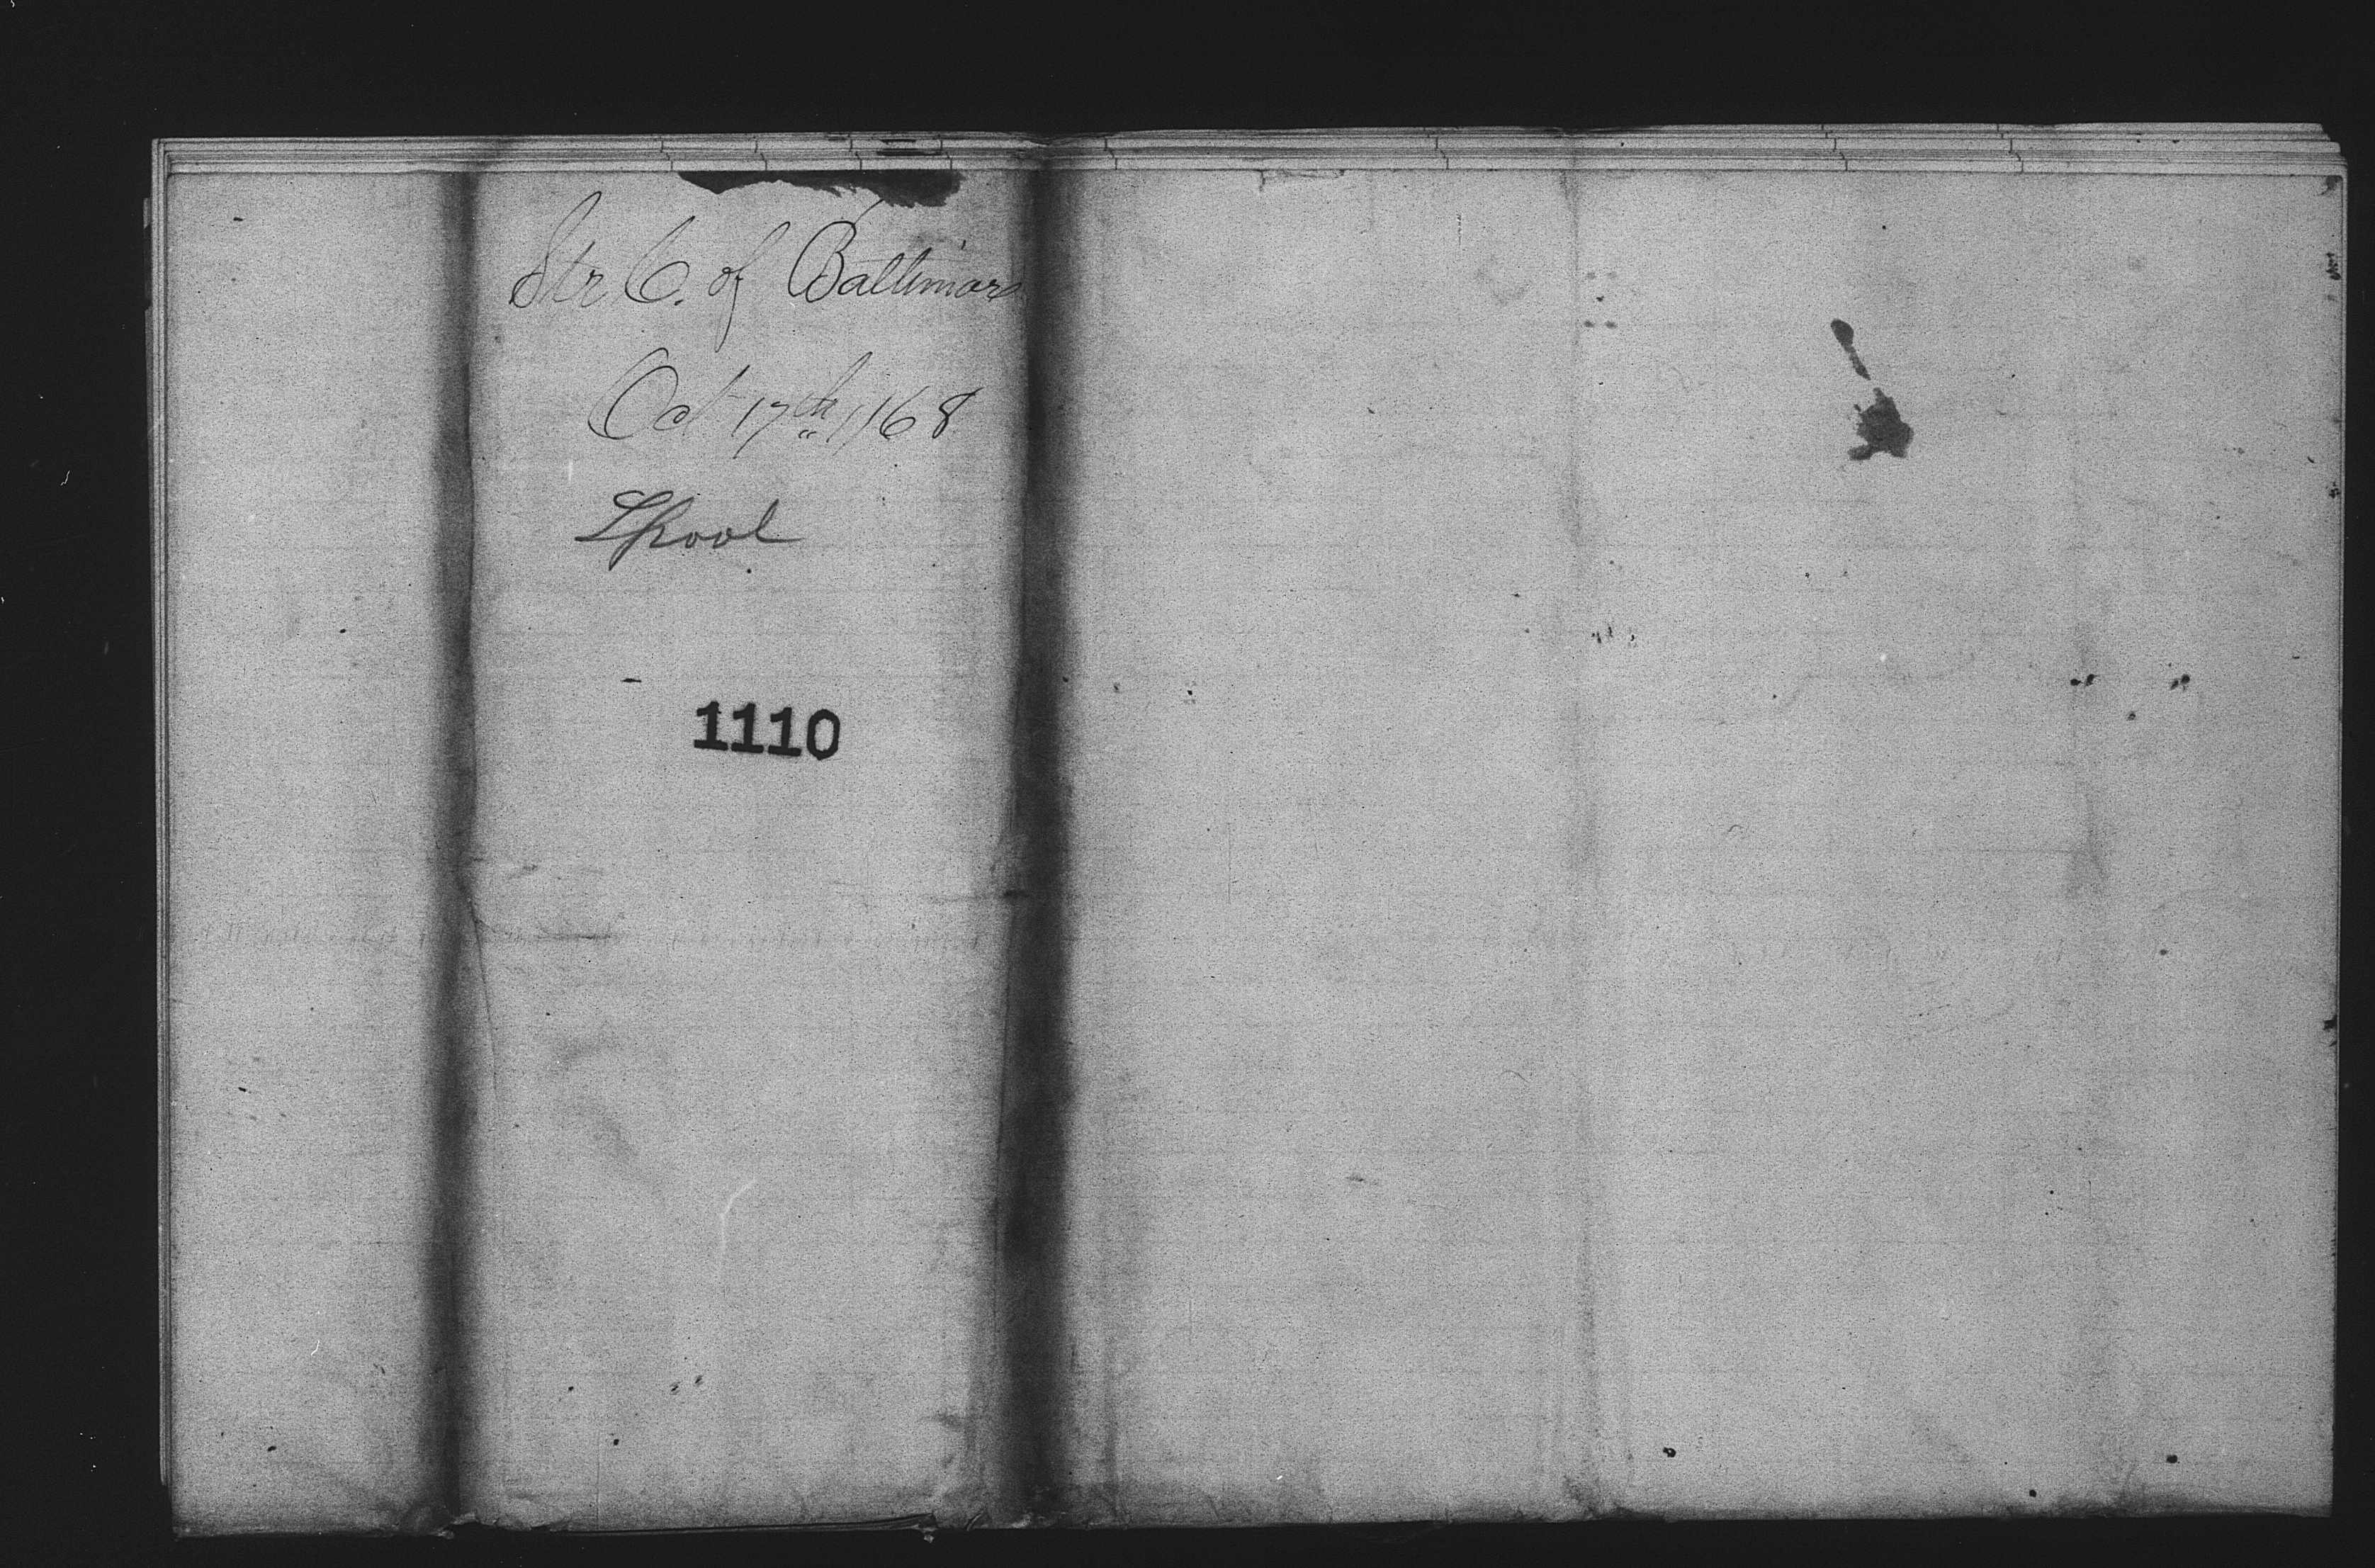 Str C. of Baltimore
Oct 17th 1168
Lpool
1110